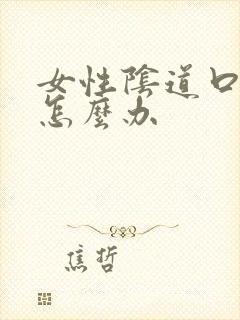 女性陰道口
怎麼办
焦哲